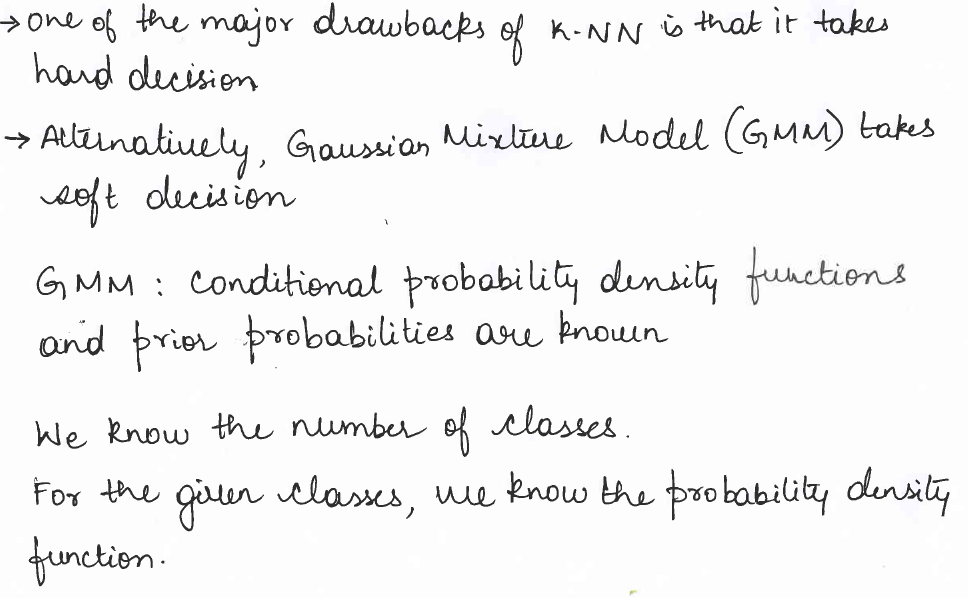 → one of the major drawbacks of K-NN is that it takes
hard decision
→ Alternatively, Gaussian Mixture Model (GMM) takes
soft decision
GMM : conditional probability density functions
and prior probabilities are known
We know the number of classes.
For the given classes, we know the probability density
function.